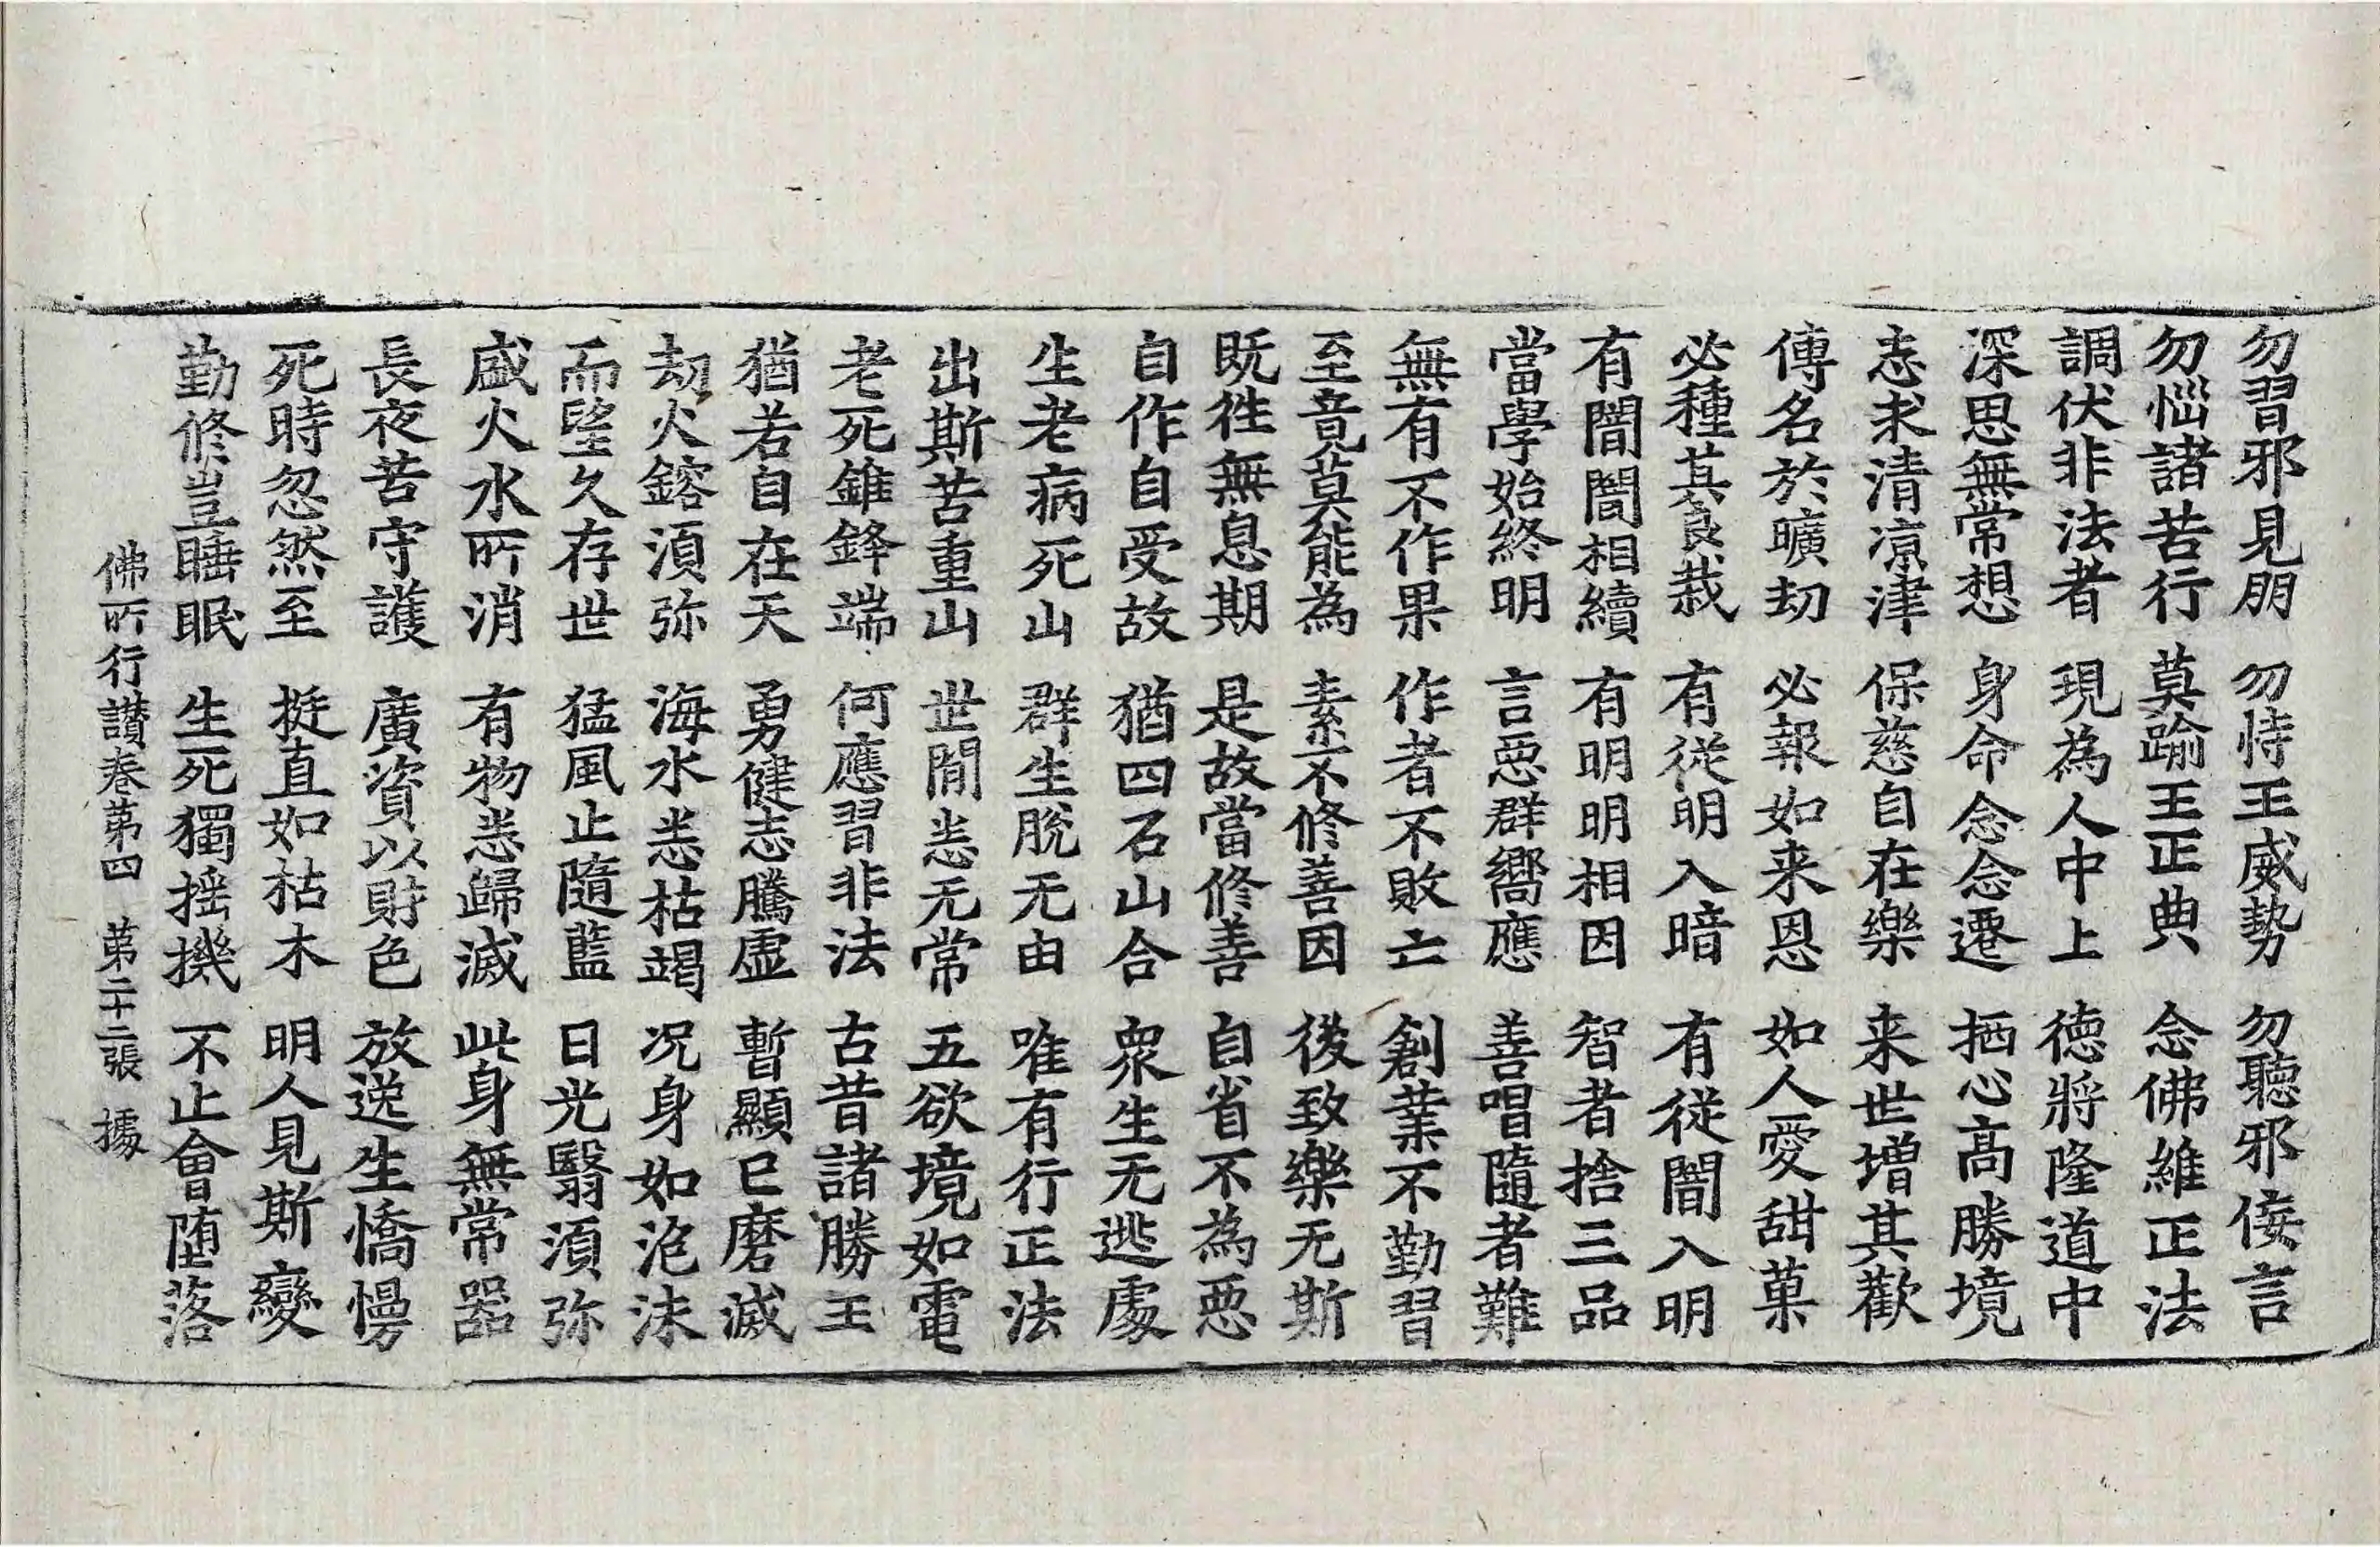 勿習邪見朋　勿恃王威勢　勿聽邪侫言
勿惱諸苦行　莫踰王正典　念佛維正法
調伏非法者　現為人中上　德將隆道中
深思無常想　身命念念遷　栖心髙勝境
志求清涼津　保慈自在樂　来世增其歡
傳名於曠劫　必報如来恩　如人愛甜菓
必種其良栽　有從明入暗　有從闇入明
有闇闇相續　有明明相因　智者捨三品
當學始終明　言惡群嚮應　善唱隨者難
無有不作果　作者不敗亡　創業不勤習
至竟莫能為　素不修善因　後致樂无斯
既往無息期　是故當修善　自省不為惡
自作自受故　猶四石山合　衆生无逃處
生老病死山　群生脫无由　唯有行正法
出斯苦重山　世閒悉无常　五欲境如電
老死錐鋒端　何應習非法　古昔諸勝王
猶若自在天　勇健志騰虛　暫顯已磨滅
劫火鎔湏弥　海水悉枯竭　况身如泡沫
而望久存世　猛風止隨藍　日光翳湏弥
盛火水所消　有物悉歸滅　此身無常器
長夜苦守護　廣資以財色　放逸生憍慢
死時忽然至　挺直如枯木　明人見斯變
勤修豈睡眠　生死獨揺機　不止會堕落
佛所行讃卷第四　第二十二張　㨿